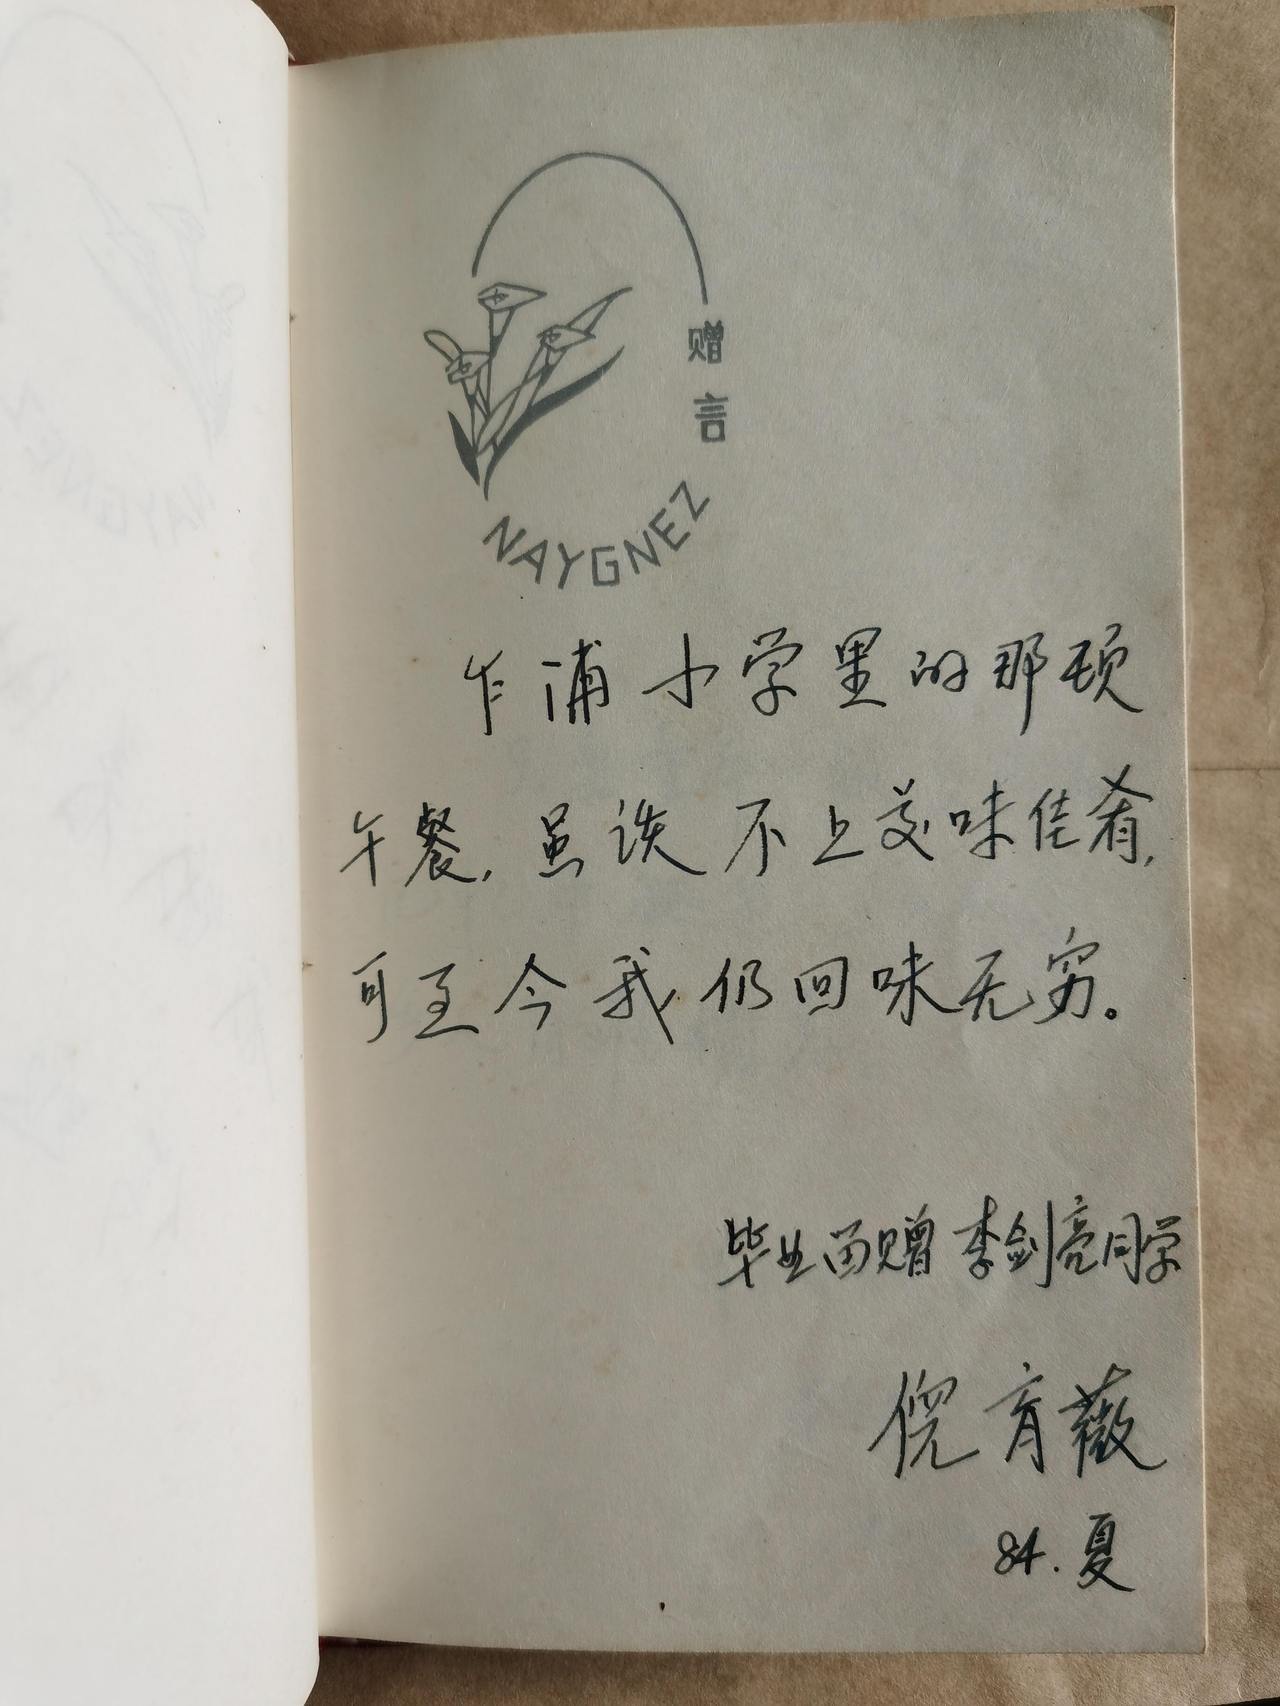 赠言
NAYGNEZ
乍浦小学里的那顿
午餐,虽谈不上美味佳肴,
可至今我仍回味无穷。
毕业留赠李剑亮同学
倪育薇
84.夏